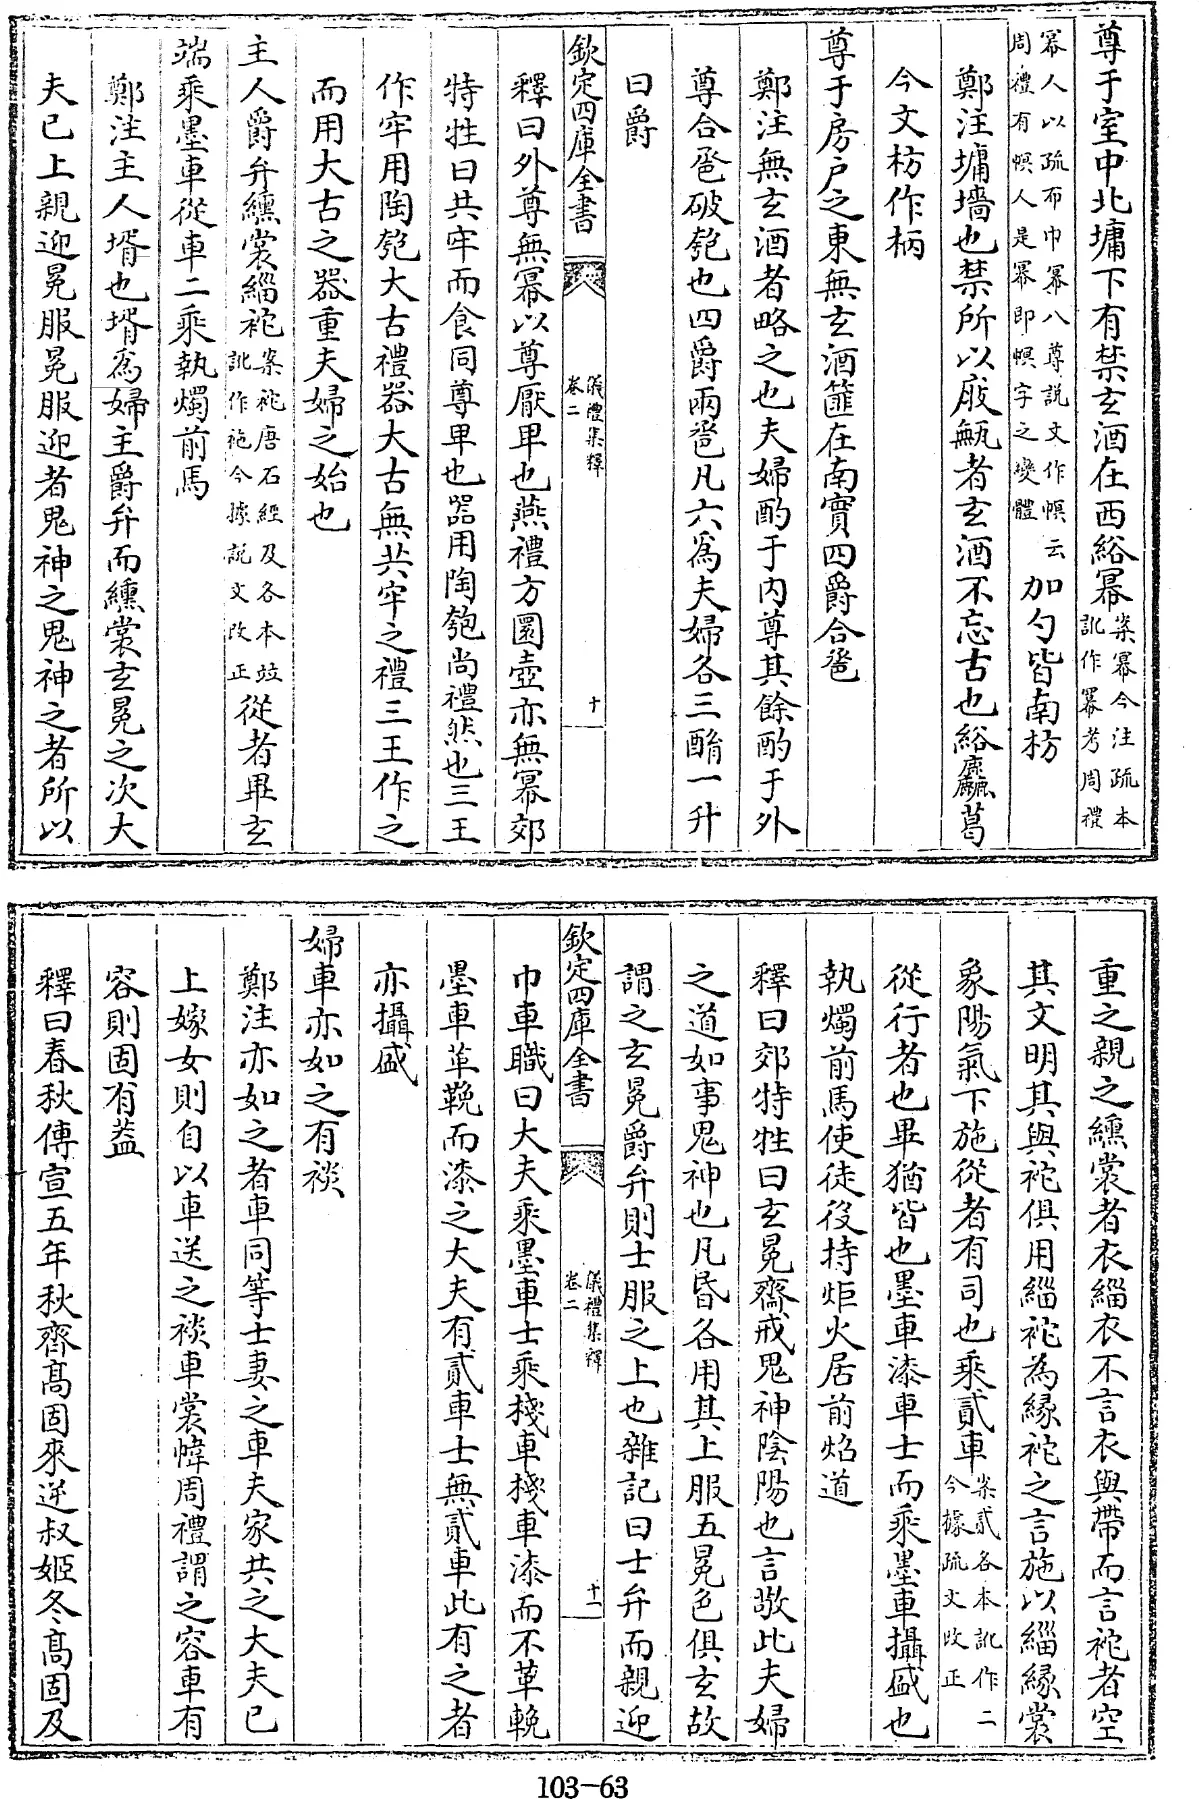 尊于室中北墉下有禁玄酒在西綌冪案冪今注疏本訛作幂考周禮
冪人以疏布巾冪八尊説文作幎云周禮有幎人是冪即幎字之變體加勺皆南枋
鄭注墉墻也禁所以庪甒者玄酒不忘古也綌麤葛
今文枋作柄
尊于房户之東無玄酒篚在南實四爵合巹
鄭注無玄酒者略之也夫婦酌于内尊其餘酌于外
尊合巹破匏也四爵兩巹凡六爲夫婦各三酳一升
曰爵
欽定四庫全書
儀禮集釋
卷二
十
釋曰外尊無冪以尊厭卑也燕禮方圜壺亦無冪郊
特牲曰共牢而食同尊卑也器用陶匏尚禮然也三王
作牢用陶匏大古禮器大古無共牢之禮三王作之
而用大古之器重夫婦之始也
主人爵弁纁裳緇袘案袘唐石經及各本竝訛作袘今據説文改正從者畢玄
端乘墨車從車二乘執燭前馬
鄭注主人壻也壻爲婦主爵弁而纁裳玄冕之次大
夫已上親迎冕服冕服迎者鬼神之鬼神之者所以
重之親之纁裳者衣緇衣不言衣與帶而言袘者空
其文明其與袘俱用緇袘為緣袘之言施以緇緣裳
象陽氣下施從者有司也乘貳車案貳各本訛作二今據疏文改正
從行者也畢猶皆也墨車漆車士而乘墨車攝盛也
執燭前馬使徒役持炬火居前炤道
釋曰郊特牲曰玄冕齋戒鬼神陰陽也言敬此夫婦
之道如事鬼神也凡昏各用其上服五冕色俱玄故
謂之玄冕爵弁則士服之上也雜記曰士弁而親迎
欽定四庫全書
儀禮集釋
卷二
十一
巾車職曰大夫乘墨車士乘棧車棧車漆而不革輓
墨車革鞔而漆之大夫有貳車士無貳車此有之者
亦攝盛
婦車亦如之有裧
鄭注亦如之者車同等士妻之車夫家共之大夫已
上嫁女則自以車送之裧車裳幃周禮謂之容車有
容則固有葢
釋曰春秋傳宣五年秋齊髙固來逆叔姬冬髙固及
103-63